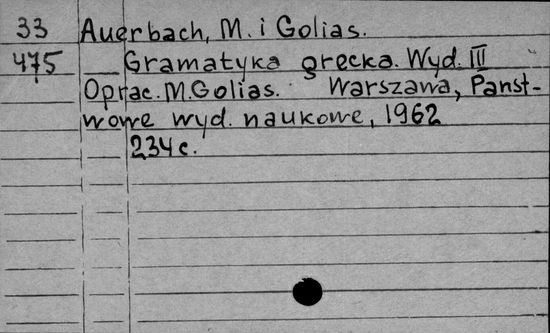 33 Auerbach, M. i Golias.
475 Gramatyka grecka. Wyd. III
Oprac. M. Golias. Warszawa, Państ-
wowe wyd. naukowe, 1962
234 c.